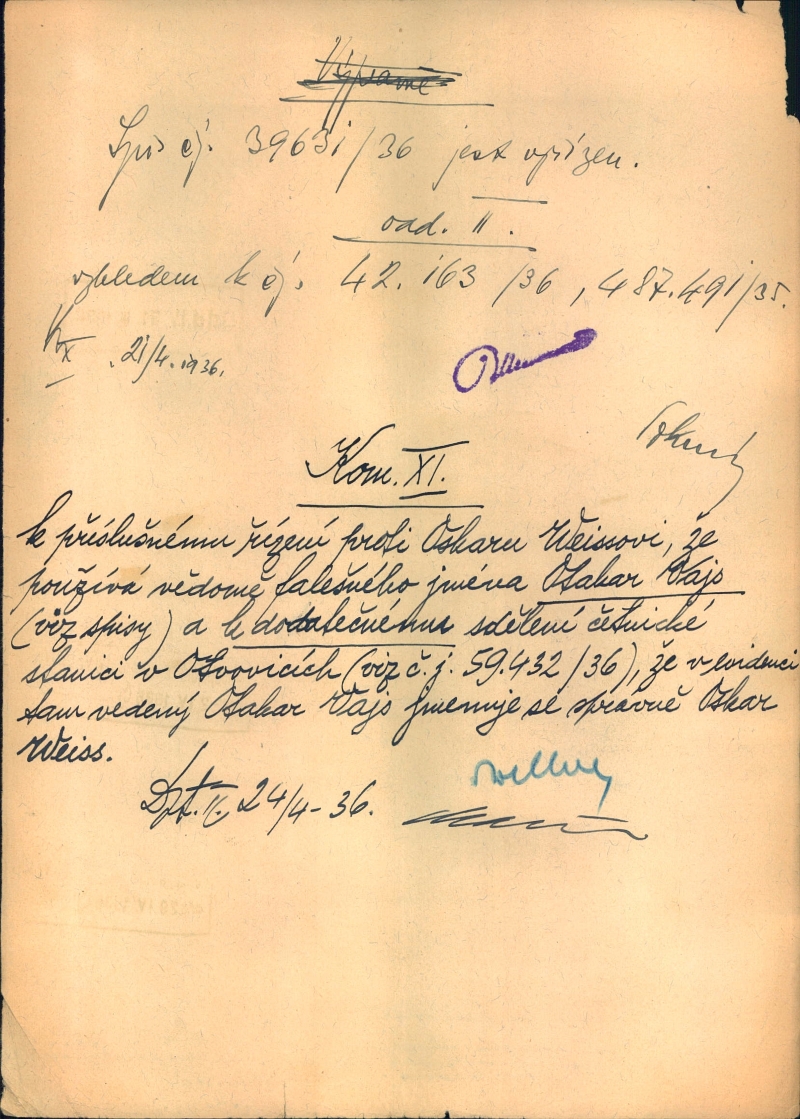 Výpravně
Spis čj. 39631/36 jest vyřízen.
odd. II.
vzhledem k čj. 42.163/36, 487.491/35.
21/4. 1936.
Kom. XI.
k příslušnému řízení proti Oskaru Weissovi, že
používá vědomě falešného jména Otakar Vajs
(viz spisy) a k dodatečnému sdělení četnické
stanici v Otvovicích (viz č. j. 59.432/36), že v evidenci
tam vedený Otakar Vajs jmenuje se správně Oskar
Weiss.
24/4-36.